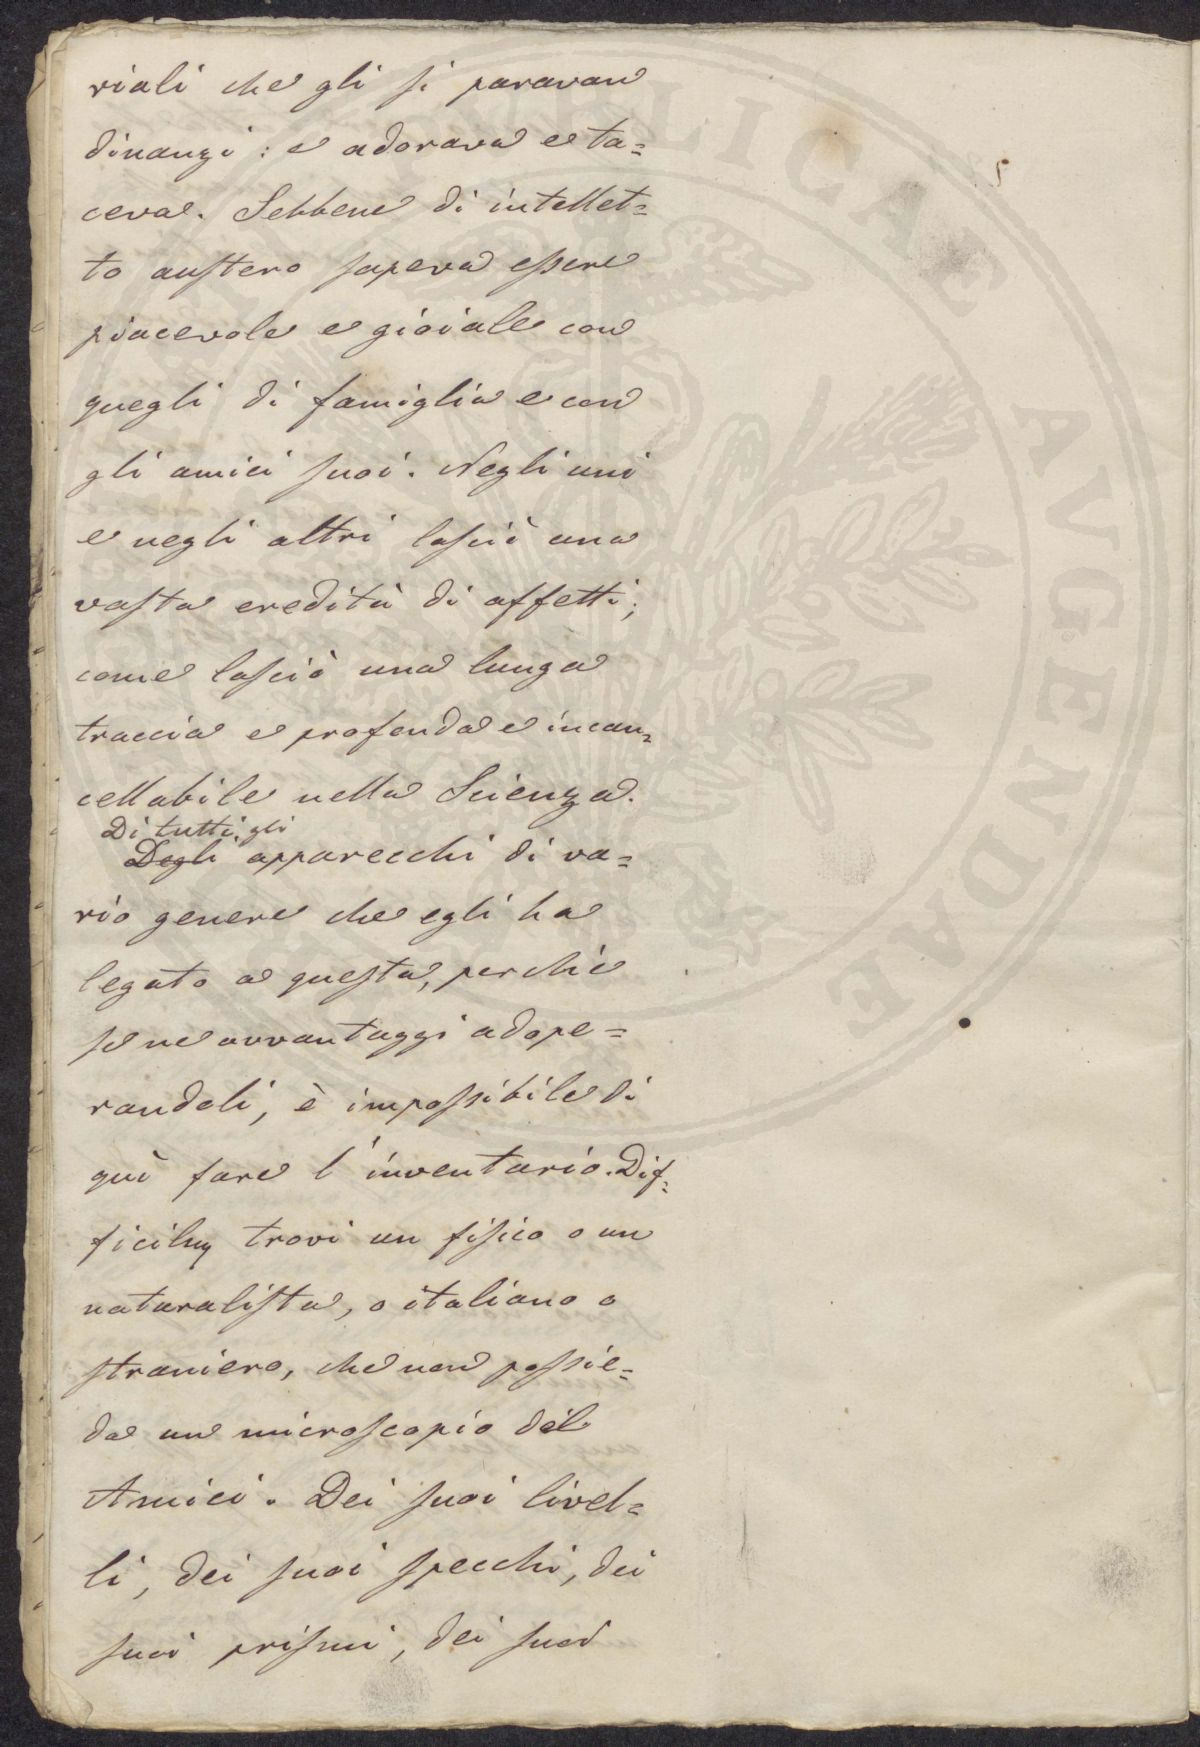 riali che gli si paravan
dinanzi: e adorava e ta=
ceva. Sebbene di intellet=
to austero sapeva essere
piacevole e gioiale con
quegli di famiglia e con
gli amici suoi. Negli uni
e negli altri lasciò una
vasta eredità di affetti;
come lasciò una lunga
traccia e profonda e incan=
cellabile nella Scienza.
Di tutti gli
Degli apparecchi di va=
rio genere che egli ha
legato a questa, perchè
se ne avvantaggi adope=
randoli, è impossibile di
quì fare l'inventario. Dif=
ficilm trovi un fisico o un
naturalista, o italiano o
straniero, che non possie=
da un microscopio del
Amici. Dei suoi livel=
li, dei suoi specchi, dei
suoi prismi, dei suoi
PVBLICAE AVGENDAE